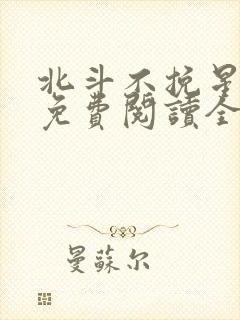 北斗不抗星
免費閱讀全
曼蘇尔